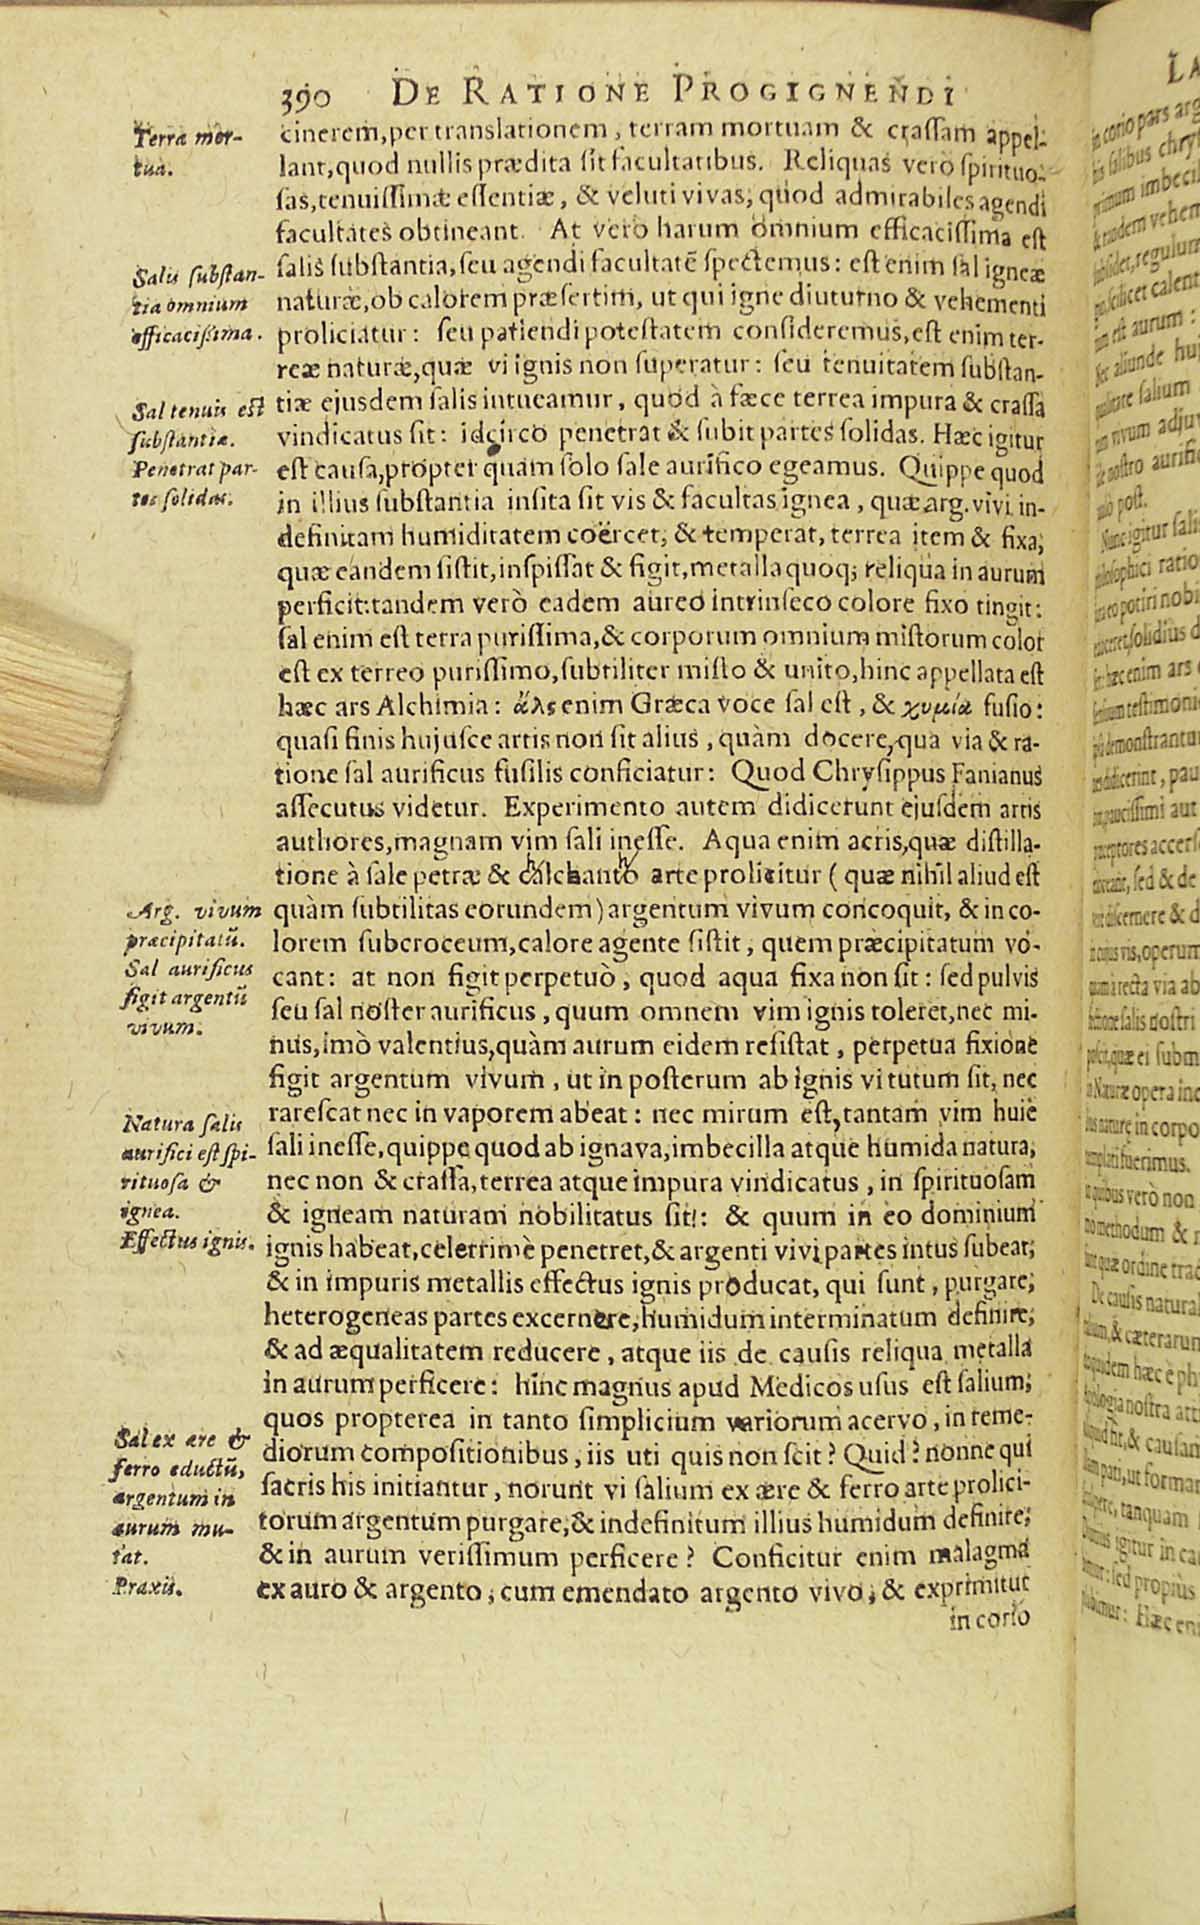 390 DE RATIONE PROGIGNENDI
Terra mor-
tua.
cinerem, per translationem, terram mortuam & crassam appel-
lant, quod nullis prædita sit facultatibus. Reliquas vero spirituo-
sas, tenuissimæ essentiæ, & veluti vivas, quod admirabiles agendi
facultates obtineant. At vero harum omnium efficacissima est
Salis substan-
tia omnium
efficacissima.
salis substantia, seu agendi facultatē spectemus: est enim sal igneæ
naturæ, ob calorem præsertim, ut qui igne diuturno & vehementi
proliciatur: seu patiendi potestatem consideremus, est enim ter-
reæ naturæ, quæ vi ignis non superatur: seu tenuitatem substan-
Sal tenuis est
substantiæ.
Penetrat par-
tes solidas.
tiæ ejusdem salis intueamur, quod à fæce terrea impura & crassa
vindicatus sit: idcirco penetrat & subit partes solidas. Hæc igitur
est causa, propter quam solo sale aurifico egeamus. Quippe quod
in illius substantia insita sit vis & facultas ignea, quæ arg. vivi in-
definitam humiditatem coërcet, & temperat, terrea item & fixa,
quæ eandem sistit, inspissat & figit, metalla quoq; reliqua in aurum
perficit: tandem verò eadem aureo intrinseco colore fixo tingit:
sal enim est terra purissima, & corporum omnium mistorum color
est ex terreo purissimo, subtiliter misto & unito, hinc appellata est
hæc ars Alchimia: ἅλς enim Græca voce sal est, & χυμία fusio:
quasi finis hujusce artis non sit alius, quàm docere, qua via & ra-
tione sal aurificus fusilis conficiatur: Quod Chrysippus Fanianus
assecutus videtur. Experimento autem didicerunt ejusdem artis
authores, magnam vim sali inesse. Aqua enim acris, quæ distilla-
tione à sale petræ & chalchantho arte prolicitur (quæ nihil aliud est
Arg. vivum
præcipitatū.
Sal aurificus
figit argentū
vivum.
quàm subtilitas eorundem) argentum vivum concoquit, & in co-
lorem subcroceum, calore agente sistit, quem præcipitatum vo-
cant: at non figit perpetuò, quod aqua fixa non sit: sed pulvis
seu sal noster aurificus, quum omnem vim ignis toleret, nec mi-
nus, imò valentius, quàm aurum eidem resistat, perpetua fixione
figit argentum vivum, ut in posterum ab ignis vi tutum sit, nec
rarescat nec in vaporem abeat: nec mirum est, tantam vim huic
Natura salis
aurifici est spi-
rituosa &
ignea.
Effectus ignis.
sali inesse, quippe quod ab ignava, imbecilla atque humida natura,
nec non & crassa, terrea atque impura vindicatus, in spirituosam
& igneam naturam nobilitatus sit: & quum in eo dominium
ignis habeat, celerrimè penetret, & argenti vivi partes intus subeat,
& in impuris metallis effectus ignis producat, qui sunt, purgare,
heterogeneas partes excernere, humidum interminatum definire,
& ad æqualitatem reducere, atque iis de causis reliqua metalla
in aurum perficere: hinc magnus apud Medicos usus est salium,
quos propterea in tanto simplicium variorum acervo, in reme-
Sal ex ære &
ferro eductū,
argentum in
aurum mu-
tat.
Praxis.
diorum compositionibus, iis uti quis non scit? Quid? nonne qui
sacris his initiantur, norunt vi salium ex ære & ferro arte prolici-
torum argentum purgare, & indefinitum illius humidum definire,
& in aurum verissimum perficere? Conficitur enim malagma
ex auro & argento, cum emendato argento vivo, & exprimitur
in corio
LA
in corio pars arg
his salibus chry
primum imbecil
& eodem vehem
subsidet, regulum
scilicet calent
est aurum:
aliunde hui
salium
vivum adju
nostro aurific
post.
Nunc igitur sali
philosophici ratio
eo potiri nobi
solidius d
hæc enim ars
testimoni
demonstrantu
didicerint, pau
paucissimi aut
præceptores accers
sed & de
discernere & d
vis, operum
recta via ab
salis nostri
quæ ei subm
Naturæ opera in
naturæ in corpo
fuerimus.
quibus verò non
methodum &
quæ ordine trad
De causis natural
& cæterarum
hæc è ph
nostra
fit, & causam
pati, ut formar
tanquam
igitur in cau
sed propiùs
Hæc en